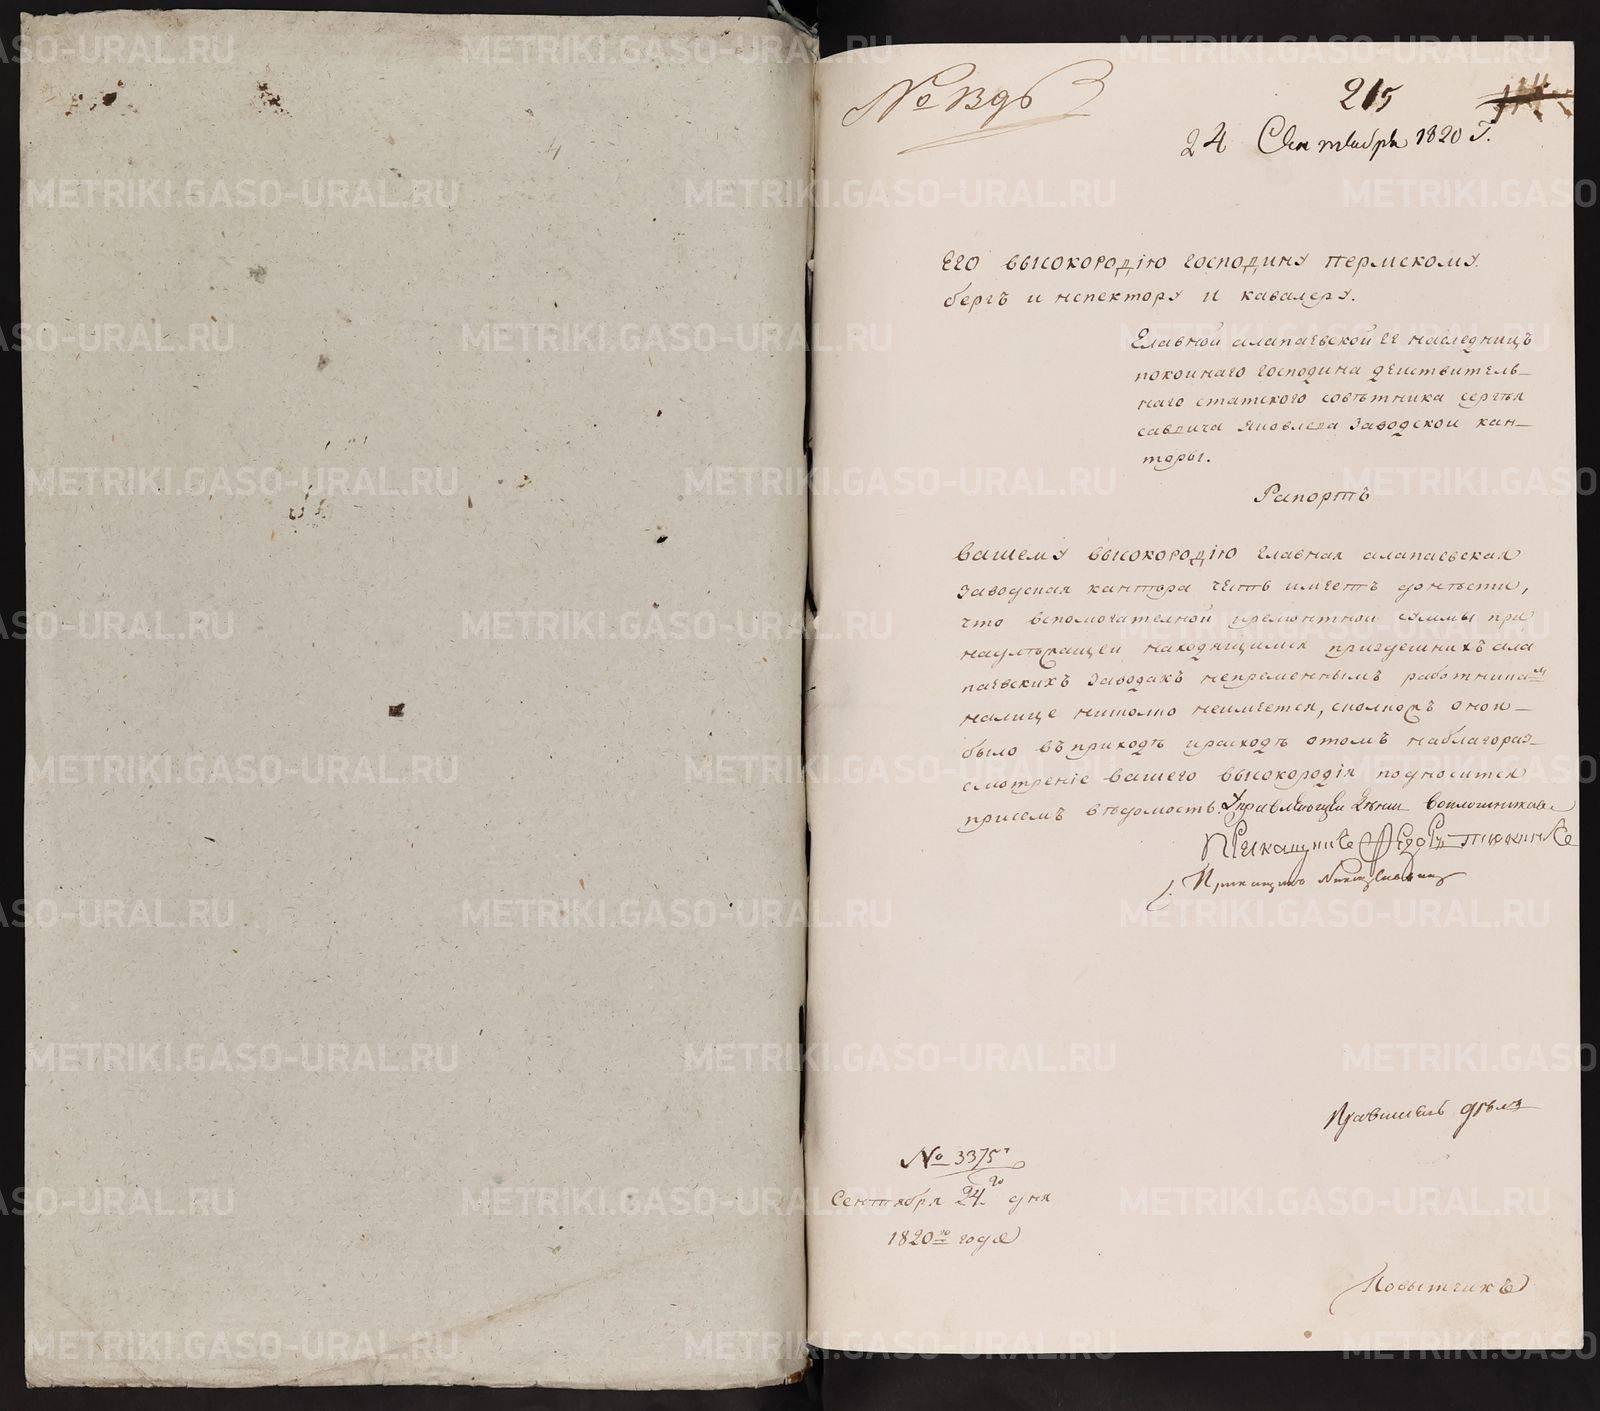 № 1396
215
24 Сентября 1820 Г.
Его высокородію господину пермскому
бергъ инспектору и кавалеру.
Главной алапаевской ее наследницъ
покоинаго господина деиствитель-
наго статского советника сергея
саввича Яковлева заводской кан-
торы.
Рапортъ
вашему высокородію главная алапаевская
заводская кантора честь имеетъ донести,
что вспомогателной иремонтной суммы при
находящимся приздешнихъ ала
паевскихъ заводахъ непременнымъ работникамъ
налице нисколко неимеется, сколкожъ оной
было въ приходе ирасходе отомъ наблагораз-
смотреніе вашего высокородія подносится
присемъ ведомость. Управляющей
Прикащикъ Федоръ
Прикащикъ
Правитель делъ
№ 3375
Сентября 24 го дня
1820 го года
Повытчикъ
METRIKI.GASO-URAL.RU